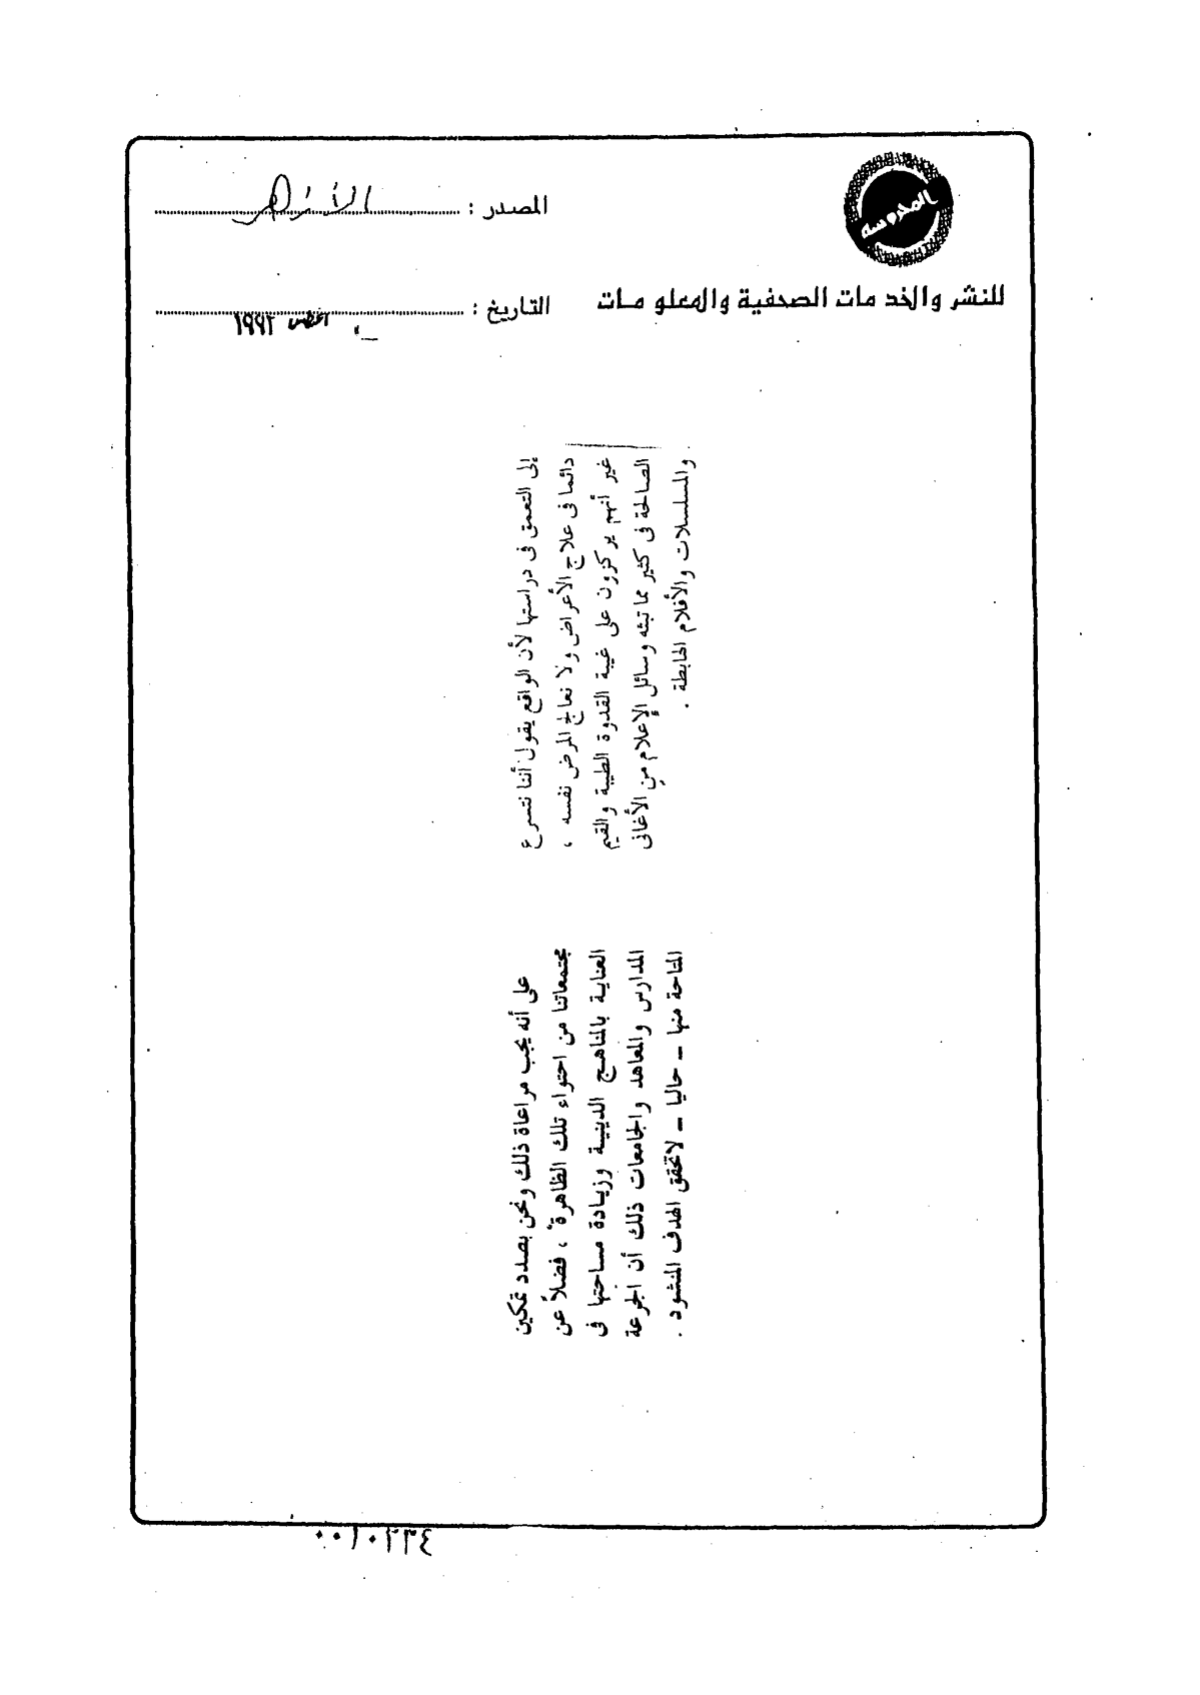 المحروسة
المصدر : الأزهر
للنشر والخدمات الصحفية والمعلومات
التاريخ : اغسطس ١٩٩٢
إلى التعمق فى دراستها لأن الواقع يقول أننا نتسرع
دائما فى علاج الأعراض ولا نعالج المرض نفسه ،
غير أنهم يركزون على غيبة القدوة الطيبة والقيم
الصالحة فى كثير مما تبثه وسائل الإعلام من الأغانى
والمسلسلات والأفلام الهابطة .
على أنه يجب مراعاة ذلك ونحن بصدد تمكين
مجتمعاتنا من احتواء تلك الظاهرة ، فضلاً عن
العناية بالمناهج الدينية وزيادة مساحتها فى
المدارس والمعاهد والجامعات ذلك أن الجرعة
المتاحة منها ـ حاليا ـ لاتحقق الهدف المنشود .